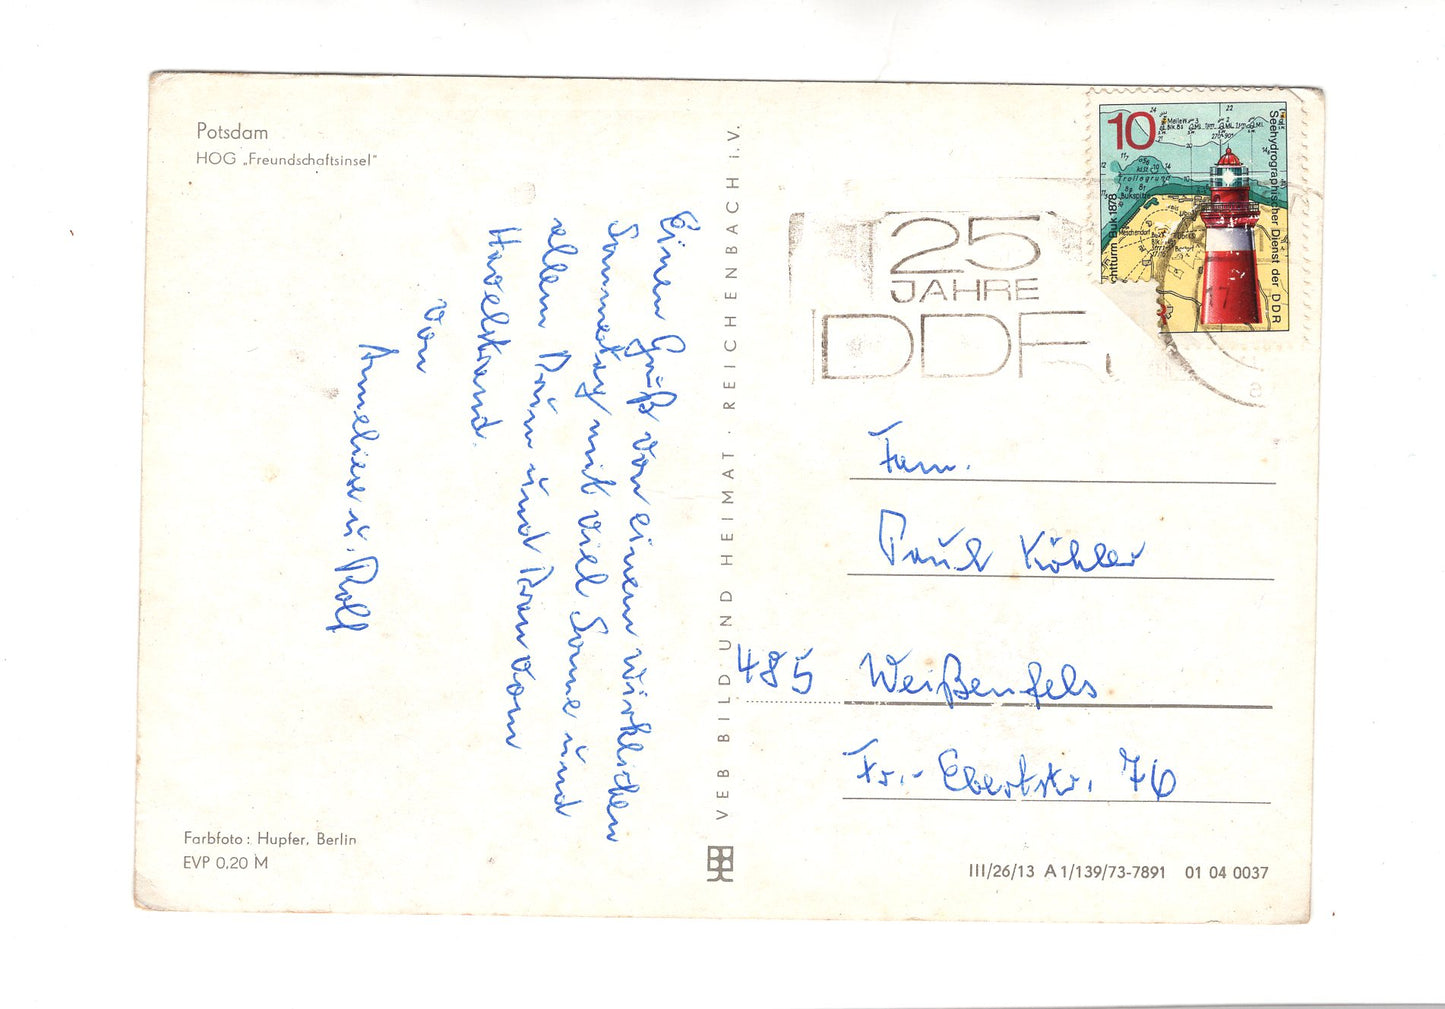 Potsdam
HOG „Freundschaftsinsel"
Einen Gruß von einem wirklichen
Sonnentag mit viel Sonne und
allem Drin und Dran vom
Havelstrand.
von
Anneliese u. Rolf
Farbfoto: Hupfer, Berlin
EVP 0,20 M
VEB BILD UND HEIMAT · REICHENBACH i. V.
25
JAHRE
DDR
17
10
Seehydrographischer Dienst der DDR
chtturm Buk 1878
Trollegrund
Bukspitze
Meschendorf
Fam.
Paul Köhler
485 Weißenfels
Fr.-Ebertstr. 76
III/26/13 A 1/139/73-7891 01 04 0037